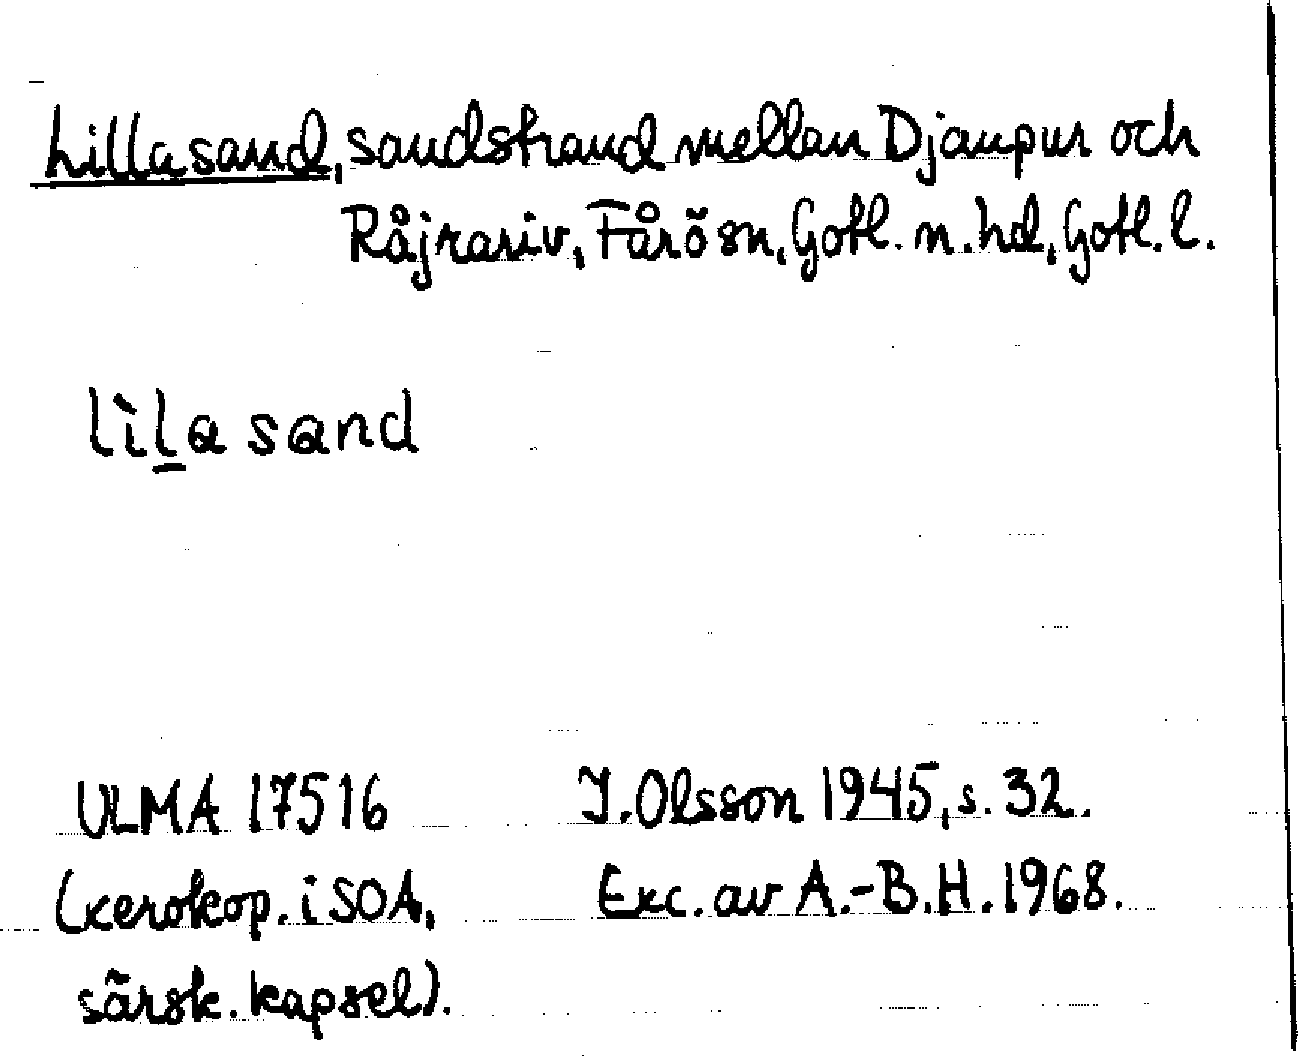 Lilla sand, sandstrand mellan Djaupur och
Råjrariv, Fårö sn, Gotl. n. hd, Gotl. l.
lìl̲a sand
ULMA 17516
(xerokop. i SOA,
särsk. kapsel).
I. Olsson 1945, s. 32.
Exc. av A.-B.H. 1968.